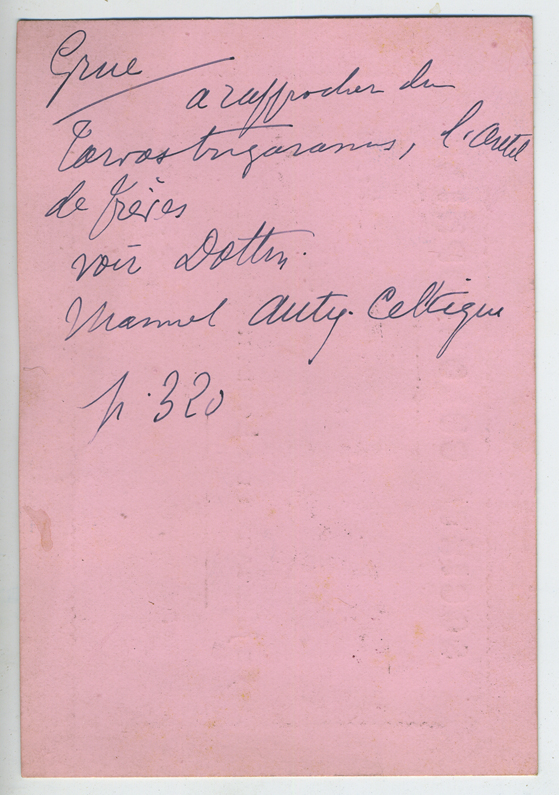 Grue
a rapprocher du
Tarvos trigaranus, l'autel
de Trèves
voir Dottin.
Manuel Antiq. Celtique
p. 320